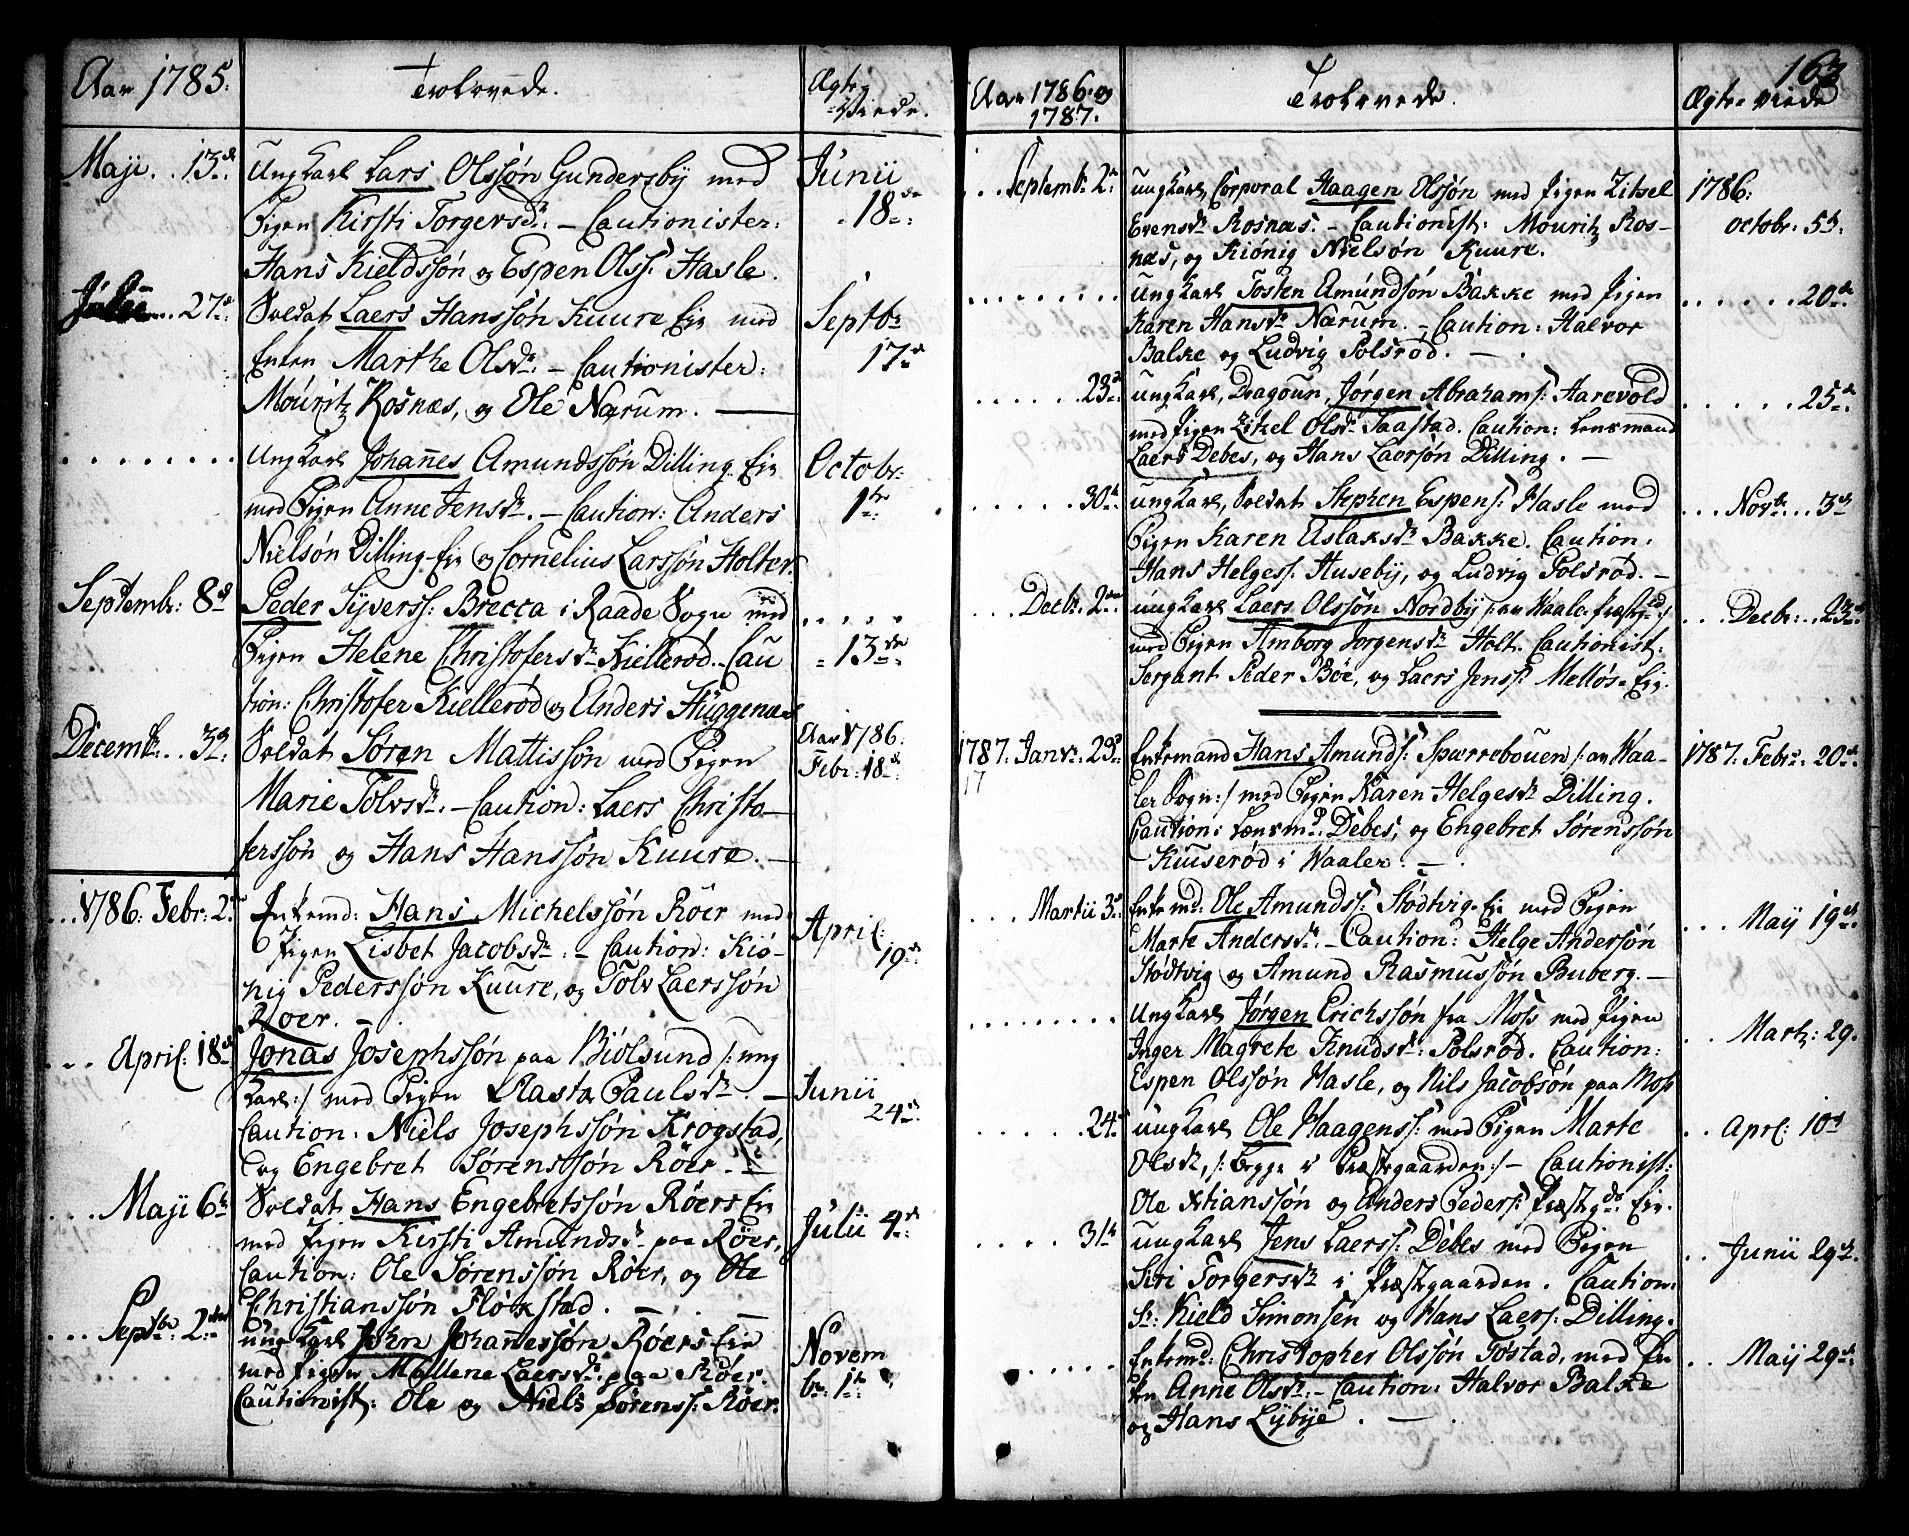 Aar 1785.
Trolovede.
Ægte-
Viede.
Maji. 13de
Ungkarl Lars Olssøn Gundersby med
Pigen Kirsti Torgersdr. – Cautionister:
Hans Kieldssøn og Espen Olss: Hasle.
Junii
18de
27de
Soldat Laers Hanssøn Kuure Eie med
Enken Marthe Olsdr. – Cautionister:
Mouritz Rosnæs, og Ole Nærum.
Septbr
17de
Ungkarl Johannes Amundssøn Dilling Eie
med Pigen Anne Jensdr. – Caution: Anders
Nielsøn Dilling-Eie og Cornelius Larssøn Holter.
Octobr:
1te
Septembr: 8de
Peder Syverss: Brecca i Raade Sogn med
Pigen Helene Christofersdr Kiellerød. Cau
tion: Christofer Kiellerød og Anders Huggenæs
13de
Decembr. 3de
Soldat Søren Mattissøn med Pigen
Marie Tolvsdr. – Caution: Laers Christo-
ferssøn og Hans Hanssøn Kuure. –
Aar 1786.
Febr: 18de
1786. Febr: 2den
Enkemd: Hans Michelssøn Röer med
Pigen Lisbet Jacobsdr. – Caution: Kiö-
nig Pederssøn Kuure, og Tolv Laerssøn
Röer. –
April:
19de
April: 18de
Jonas Josephssøn paa Biölsund /: ung
karl :/ med Pigen Aasta Paulsdr. –
Caution: Niels Josephssøn Krogstad,
og Engebret Sørenssøn Röer. –
Junii
24de
Maji 6te
Soldat Hans Engebretssøn Röers Eie
med Pigen Kirsti Amundsdr paa Röer,
Caution: Ole Sørenssøn Röer, og Ole
Christianssøn Flöxstad. –
Julii 4de
Septbr: 2den
ung karl John Johannessøn Röers Eie
med Pigen Mallene Laersdr: paa Röer.
Cautionist: Ole og Niels Sørenss: Röer.
Novem
br: 1te
163
Aar 1786. og
1787.
Trolovede.
Ægte-viede
Septembr 2den
ungkarl Corporal Haagen Olssøn med Pigen Zitsel
Evensdr Rosnæs. – Cautionist: Mouritz Ros-
næs, og Kiönig Nielsøn Kuure.
1786:
octobr: 5te.
Ungkarl Tosten Amundsøn Bakke med Pigen
Karen Hansdr Nærum. – Caution: Halvor
Balke og Ludvig Polsröd. –
20de
23de
ungkarl, Dragoun, Jørgen Abrahams: Aarevold
med Pigen Zitzel Olsdr Taastad. Caution: Lensmand
Laers Debes, og Hans Laersøn Dilling. –
25de
30te
ungkarl, Soldat Stephen Espens: Hasle med
Pigen Karen Aslaksdr Bakke. Caution:
Hans Helgess: Huseby, og Ludvig Polsröd. –
Novbr. 3de
Decbr. 2den
ungkarl Laers Olssøn Nordby /: av Waale-Præstegd :/
med Pigen Amborg Jorgensdr Holt. Cautionist:
Sergant Peder Böe, og Laers Jenss: Mellös-Eie.
Decbr: 23de
1787. Janv. 23de
17
Enkemand Hans Amunds: Sparrebouen /: av Waa-
ler Sogn :/ med Pigen Karen Helgesdr Dilling.
Caution: Lænsmd. Debes, og Engebret Sørenssøn
Kiuserød i Waaler. –
1787. Febr. 20de
Martii 3de
Enkemd: Ole Amundss: Stödtvig-Eie med Pigen
Marte Andersdr. – Caution: Helge Anderssøn
Stödtvig og Amund Rasmussøn Buberg. –
May 19de
Ungkarl Jørgen Erichssøn fra Moss med Pigen
Inger Magrete Knudsdr. Polsröd. Caution:
Espen Olssøn Hasle, og Nils Jacobsøn paa Moss
Mart: 29.
24de
ungkarl Ole Haagenss: med Pigen Marte
Olsdr, /: begge i Præstegaarden :/ – Cautionist:
Ole Xtianssøn og Anders Peders: Præstgds Eie.
Apr: 10de
31te
ungkarl Jens Laerss: Debes med Pigen
Siri Torgersdr i Præstgaarden. Caution:
Sr: Kield Simonsen og Hans Laers: Dilling.
Junii 29de
Enkemd: Christopher Olssøn Tostad, med En
ken Anne Olsdr. – Caution: Halvor Balke
og Hans Lybye. –
May 29de